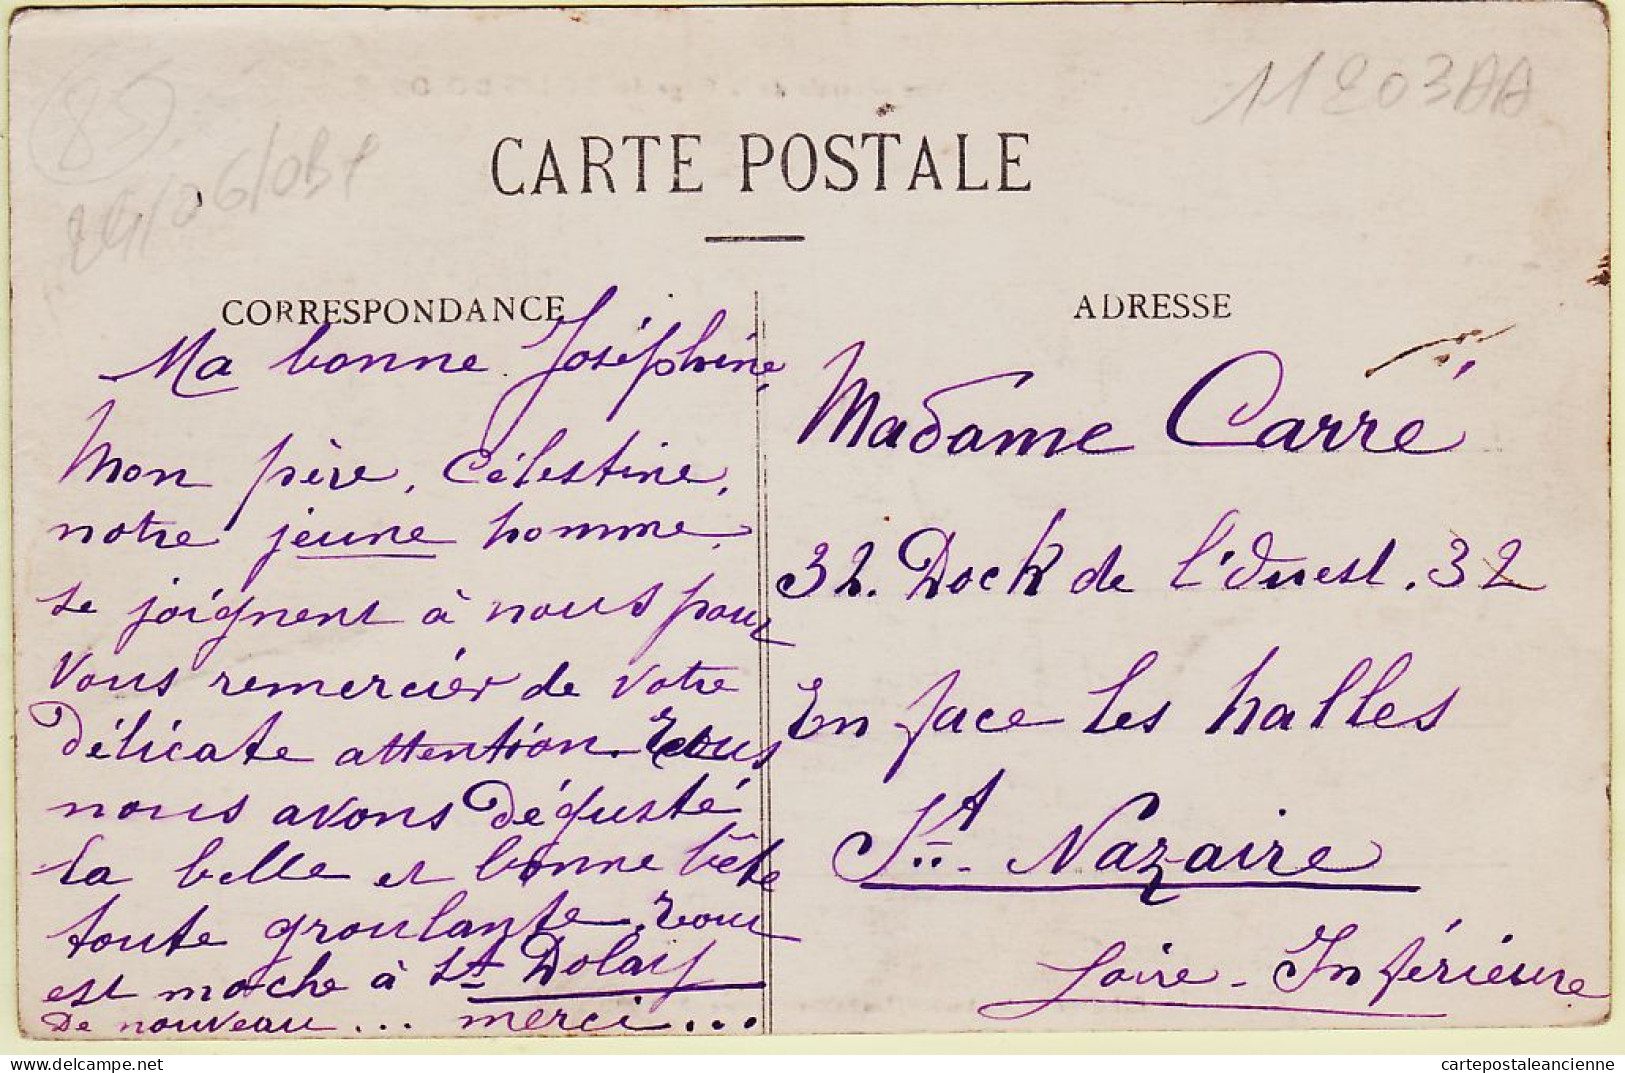 11203AA
85
CARTE POSTALE
CORRESPONDANCE
Ma bonne Joséphine,
Mon père, Célestine,
notre jeune homme,
se joignent à nous pour
vous remercier de votre
délicate attention. Tous
nous avons dégusté
la belle et bonne bête
toute groulante. Tout
est moche à St Dolay
De nouveau ... merci ...
ADRESSE
Madame Carré
32. Dock de l'Ouest. 32
En face les halles
St. Nazaire
Loire-Inférieure
delcampe.net
cartepostaleancienne